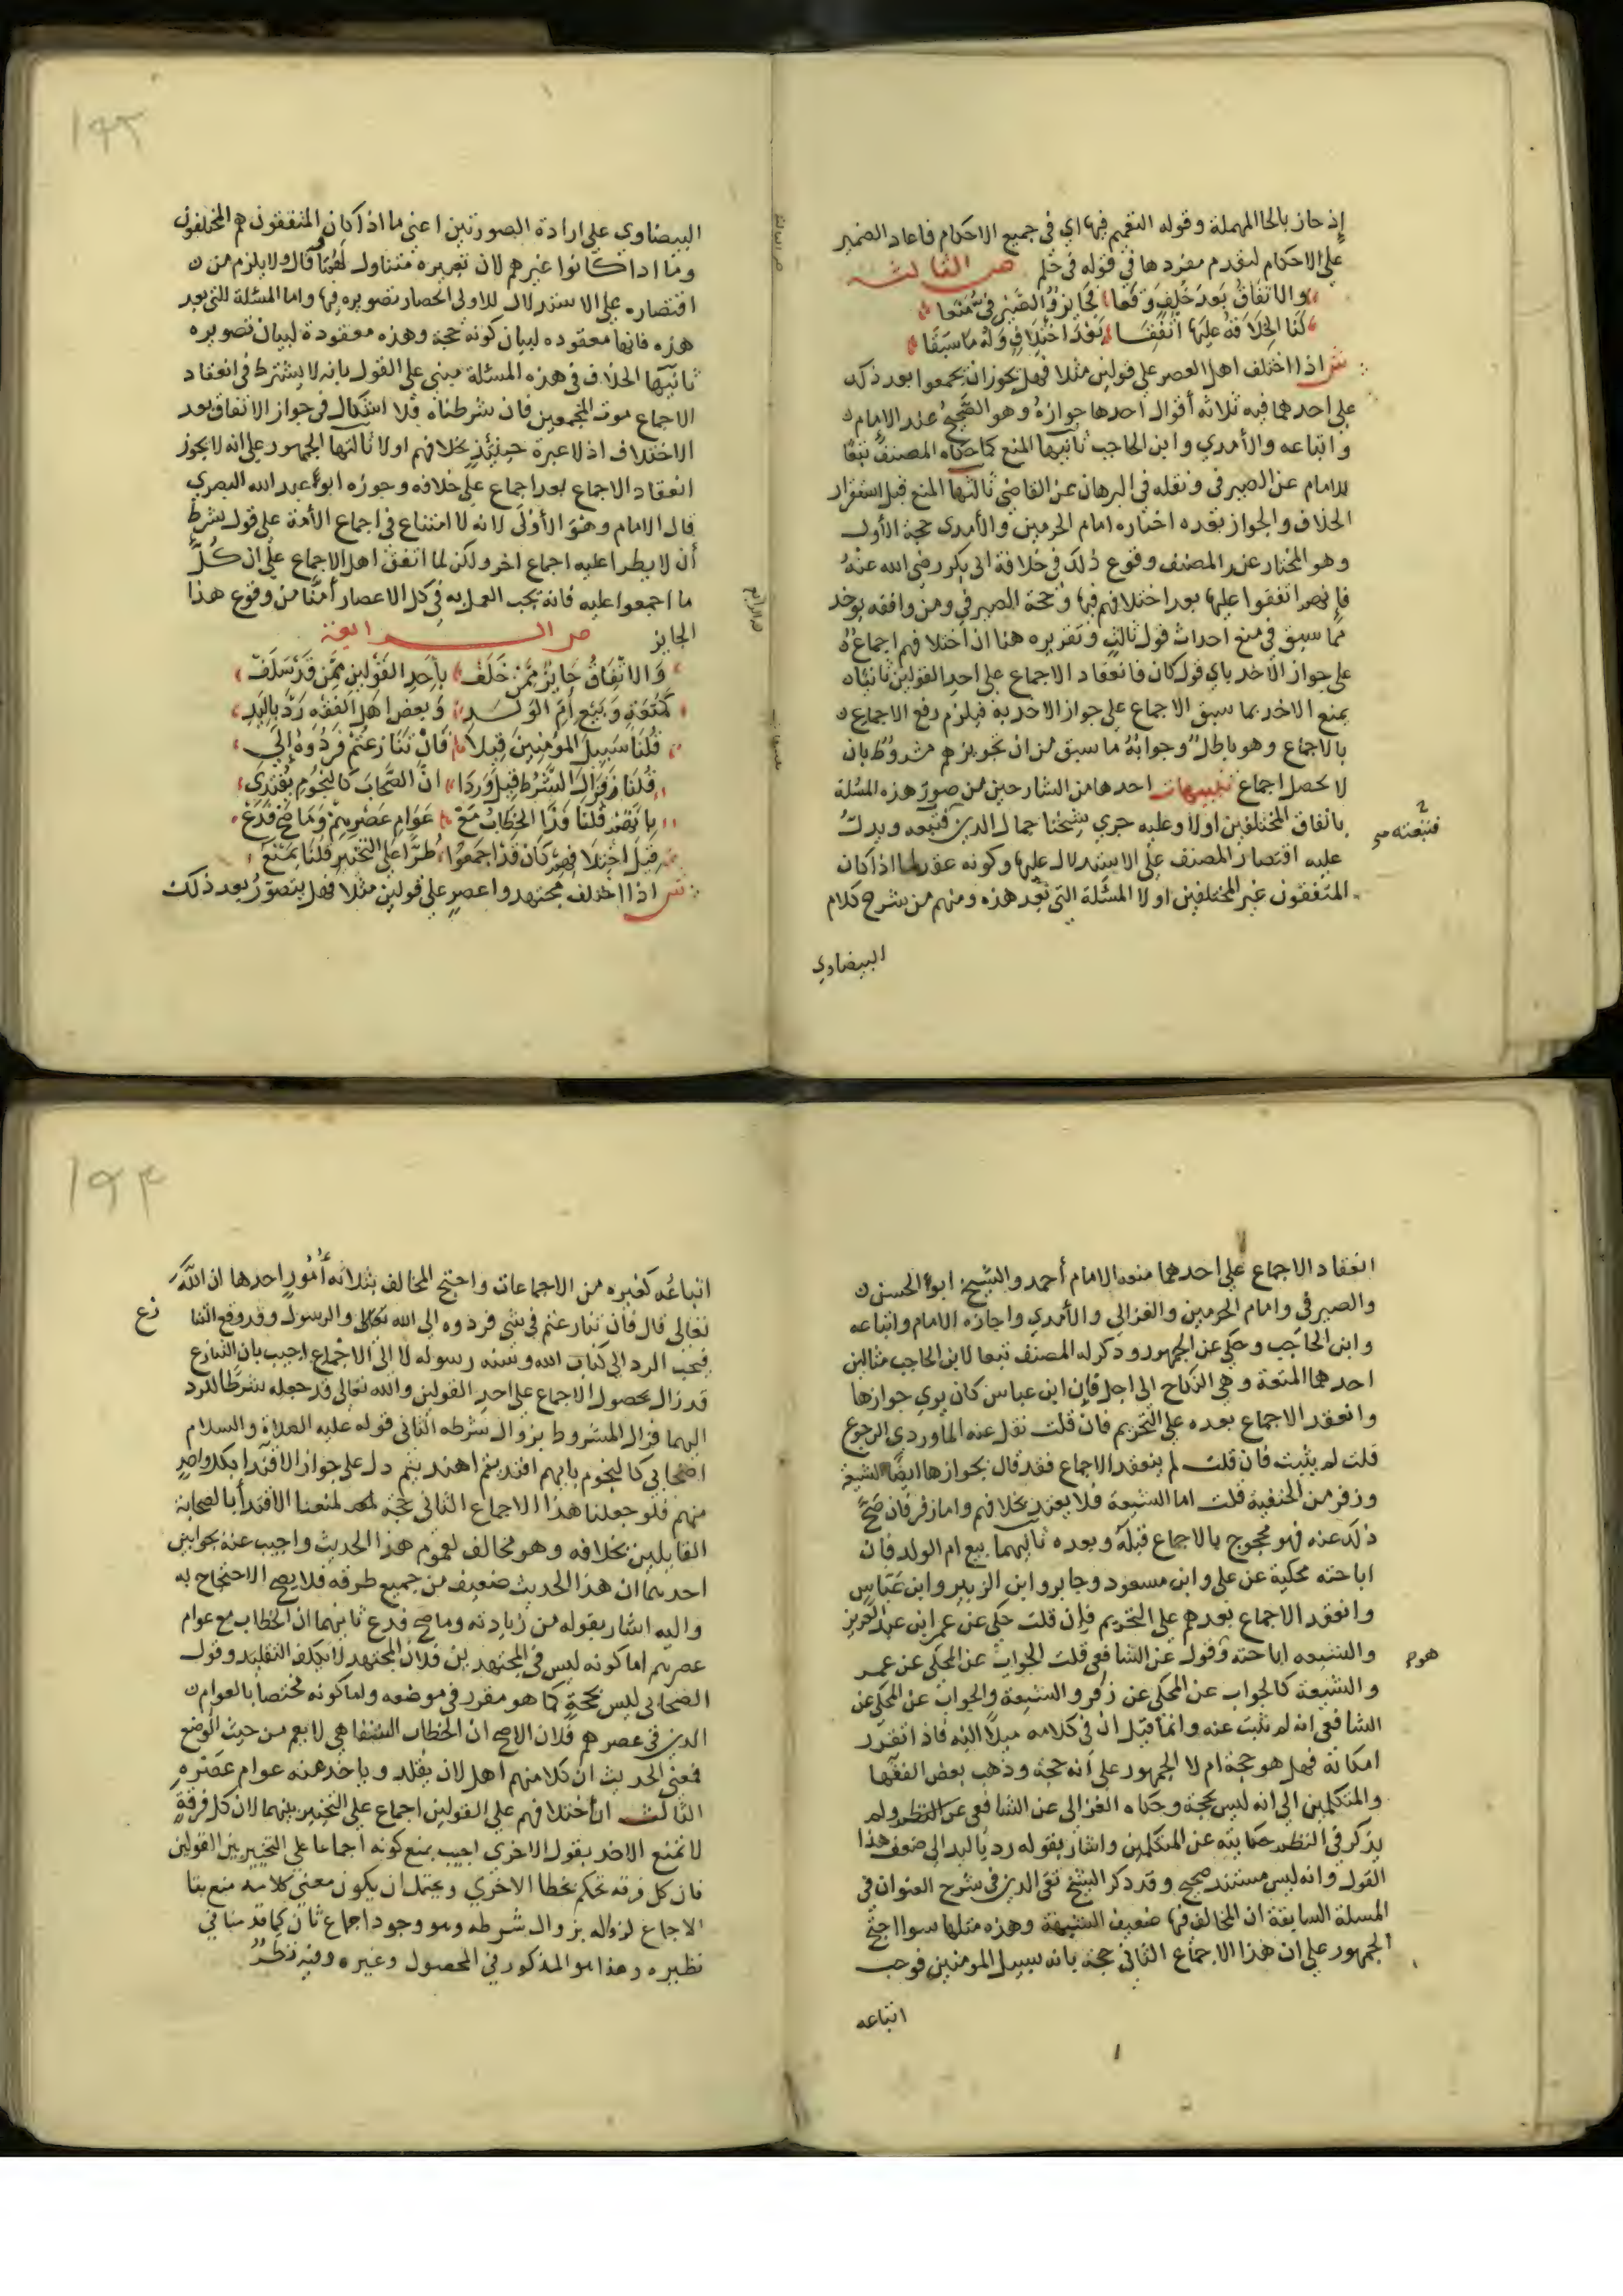 إذ حاز بالحا المهملة وقوله التعميم فيها اي في جميع الاحكام فاعاد الضمير
على الاحكام لتقدم مفردها في قوله في حكم ص الثالثه
والاتفاق بعد خلف وقعا فجايز والصيرفي منعا
لنا الخلافة عليها اتفقا بعد اختلاف وله ما سبقا
ش اذا اختلف اهل العصر على قولين مثلا فهل يجوز ان يجمعوا بعد ذلك
على احدهما فيه ثلاثة أقوال احدها جوازه وهو الصحيح عند الإمام
واتباعه والأمدي وابن الحاجب ثانيها المنع كما حكاه المصنف تبعًا
للامام عن الصيرفي ونقله في البرهان عن القاضي ثالثها المنع قبل استقرار
الخلاف والجواز بعده اختاره امام الحرمين والأمدي حجة الأول
وهو المختار عند المصنف وقوع ذلك في خلافة ابي بكر رضي الله عنهُ
فانهم اتفقوا عليها بعد اختلافهم فيها وحجة الصيرفي ومن وافقه يوخذ
مما سبق في منع احداث قول ثالث وتقريره هنا ان اختلافهم اجماع
على جواز الاخذ باي قول كان فانعقاد الاجماع على احد القولين ثانيًا
يمنع الاخذ بما سبق الاجماع على جواز الاخذ به فيلزم رفع الاجماع
بالاجماع وهو باطل وجوابهُ ما سبق من ان تجويزهم مشروط بان
لا يحصل اجماع تنبيهات احدها من الشارحين من صور هذه المسئلة
باتفاق المختلفين اولا وعليه جري شيخنا جمال الدين فتبعه ويدل
فتبعته صح
عليه اقتصار المصنف على الاستدلال عليها وكونه عقد لما اذا كان
المتفقون غير المختلفين اولا المسئلة التي بعد هذه ومنهم من شرح كلام
البيضاوي
١٩٣
البيضاوي على ارادة الصورتين اعني ما اذا كان المتفقون هم المختلفون
وما اذا كانوا غيرهم لان تعبيره متناول لهما قال ولا يلزم من
اقتصاره على الاستدلال للاولى انحصار تصويره فيها واما المسئلة التي بعد
هذه فانها معقوده لبيان كونه حجة وهذه معقودة لبيان تصويره
ثانيها الخلاف في هذه المسئلة مبني على القول بانه لا يشترط في انعقاد
الاجماع موت المجمعين فان شرطناه فلا اشكال في جواز الاتفاق بعد
الاختلاف اذ لا عبرة حينئذ بخلافهم اولا ثالثها الجمهور على انه لا يجوز
انعقاد الاجماع بعد اجماع على خلافه وجوزه ابو عبد الله البصري
قال الامام وهو الأولى لانه لا امتناع في اجماع الأمة على قول بشرط
أن لا يطرا عليه اجماع اخر ولكن لما اتفق اهل الاجماع على ان كل
ما اجمعوا عليه فانه يجب العمل به في كل الاعصار أمنّا من وقوع هذا
الجايز ص الرابعة
والاتفاق جايز ممن خلف بأحد القولين ممن قد سلف
كمتعة وبيع أم الولد وبعض اهل الفقه رد باليد
قلنا سبيل المؤمنين قبلا فان تنازعتم فردوه إلى
قلنا فزال الشرط قيل وردا ان الصحاب كالنجوم يقتدى
قلنا وذا الخطاب مع عوام عصرهم وما صح فدع
قيل اختلافهم كان قد اجمعوا طرا على التخيير قلنا يمنع
ش اذا اختلف مجتهدوا عصر على قولين مثلا فهل يتصور بعد ذلك
انعقاد الاجماع على احدهما منعه الامام أحمد والشيخ ابو الحسن
والصيرفي وامام الحرمين والغزالي والأمدي واجازه الامام واتباعه
وابن الحاجب وحكي عن الجمهور وذكر له المصنف تبعا لابن الحاجب مثالين
احدهما المتعة وهي النكاح الى اجل فان ابن عباس كان يري جوازها
وانعقد الاجماع بعده على التحريم فان قلت نقل عنه الماوردي الرجوع
قلت لم يثبت فان قلت لم ينعقد الاجماع فقد قال بجوازها ايضًا الشيعة
وزفر من الحنفية قلت اما الشيعة فلا يعتد بخلافهم واما زفر فان صحَّ
ذلك عنه فهو محجوج بالاجماع قبله وبعده ثانيهما بيع ام الولد فان
اباحته محكية عن علي وابن مسعود وجابر وابن الزبير وابن عباس
وانعقد الاجماع بعدهم على التحريم فإن قلت حكي عن عمر ابن عبد العزيز
والشيعه اباحته وقول عن الشافعي قلت الجواب عن المحكي عن عمر
هوم
والشيعة كالجواب عن المحكي عن زفر والشيعة والجواب عن المحكي عن
الشافعي انه لم يثبت عنه وانما قيل ان في كلامه ميلًا اليه فاذا تقرر
امكانه فهل هو حجة ام لا الجمهور على أنه حجة وذهب بعض الفقها
والمتكلمين الى انه ليس بحجة وحكاه الغزالي عن الشافعي ولم
يذكر في حكايته عن المتكلمين واشار بقوله رد باليد الى ضعف هذا
القول وانه ليس مستند صحيح وقد ذكر الشيخ تقي الدين في شرح العنوان في
المسلة السابقة ان المخالف فيها ضعيف الشبهة وهذه مثلها سوا احتج
الجمهور على ان هذا الاجماع الثاني حجة بانه سبيل المومنين فوجب
اتباعه
١٩٤
اتباعُه كغيره من الاجماعات واحتج المخالف بثلاثه أمور احدها ان الله
تعالى قال فان تنازعتم في شي فردوه الى الله تعالى والرسول وقد وقع التنا
زع
فيجب الرد الى كتاب الله وسنه رسوله لا الى الاجماع اجيب بان التنازع
قد زال بحصول الاجماع على احد القولين والله تعالى قد جعله شرطًا للرد
اليهما فزال المشروط بزوال شرطه الثاني قوله عليه الصلاة والسلام
اصحابي كالنجوم بايهم اقتديتم اهتديتم دل على جواز الاقتدا بكل واحدٍ
منهم فلو جعلنا هذا الاجماع الثاني حجة لمنعنا الاقتدا بالصحابة
القايلين بخلافه وهو مخالف لعموم هذا الحديث واجيب عنه بجوابين
احدهما ان هذا الحديث ضعيف من جميع طرقه فلا يصح الاحتجاج به
واليه اشار بقوله من زيادته وما صح فدع ثانيهما ان الخطاب مع عوام
عصرهم اما كونه ليس في المجتهدين فلان المجتهد لا يكلف التقليد وقول
الصحابي ليس بحجةٍ كما هو مقرر في موضعه واما كونه مختصا بالعوام
الذين في عصرهم فلان الاصح ان الخطاب الشفاهي لا يعم من حيث الوضع
فمعنى الحديث ان كلا منهم اهل لان يقلد وياخذ منه عوام عصره
الثالث ان اختلافهم على القولين اجماع على التخيير بينهما لان كل فرقةٍ
لا تمنع الاخذ بقول الاخرى اجيب بمنع كونه اجماعا على التخيير بين القولين
فان كل فرقه تحكم بخطا الاخري ويحتمل ان يكون معني كلامه منع بقا
الاجماع لزواله بزوال شرطه وهو وجود اجماع ثان كما قدمنا في
نظيره وهذا هو المذكور في المحصول وغيره وفيه نظرٌ